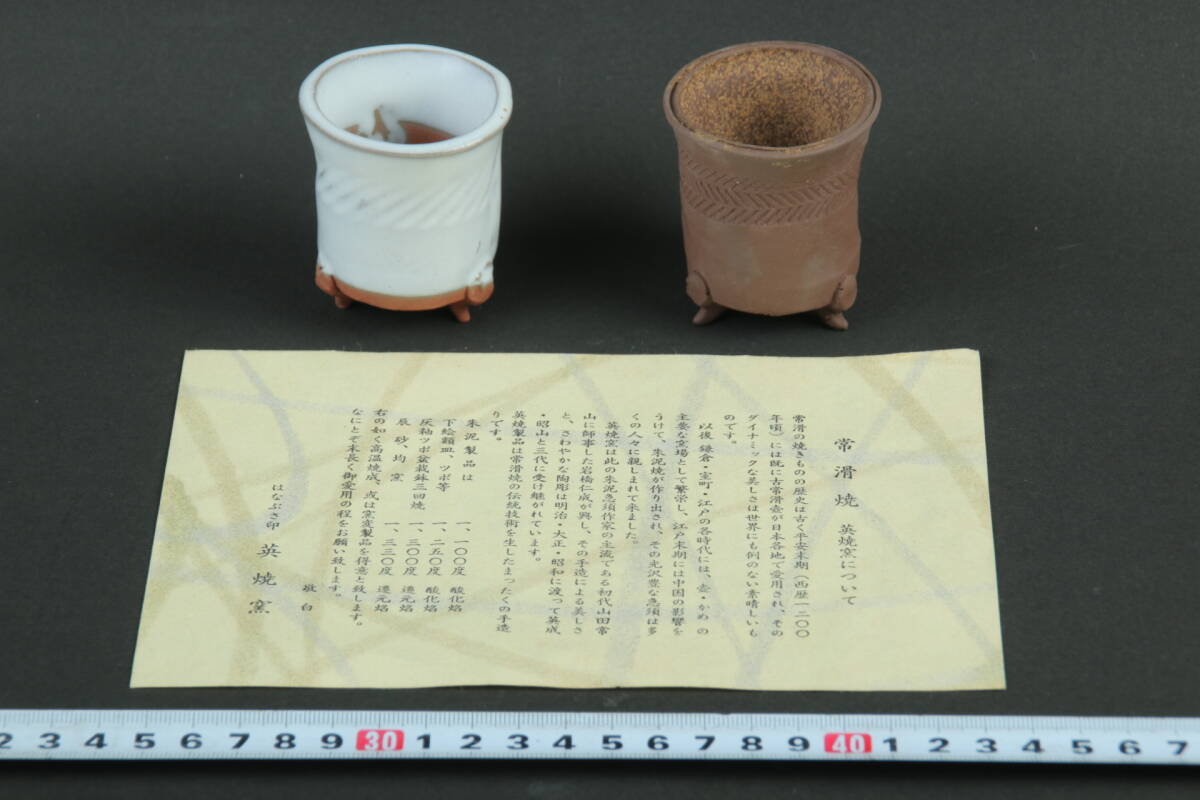 常滑焼 英焼窯について
常滑の焼きものの歴史は古く平安末期(西歴一二〇〇
年頃)には既に古常滑壺が日本各地で愛用され、その
ダイナミックな美しさは世界にも例のない素晴しいも
のです。
以後鎌倉・室町・江戸の各時代には、壺・かめの
主要な窯場として繁栄し、江戸末期には中国の影響を
うけて、朱泥焼が作り出され、その光沢豊な急須は多
くの人々に親しまれて来ました。
英焼窯は此の朱泥急須作家の主流である初代山田常
山に師事した岩橋仁成が興し、その手造による美しさ
と、さわやかな陶彫は明治・大正・昭和に渡って英成、
・昭山と三代に受け継がれています。
英焼製品は常滑焼の伝統技術を生したまったくの手造
りです。
朱泥製品は 一、一〇〇度 酸化焰
下絵額皿、ツボ等 一、二五〇度 酸化焰
灰釉ツボ盆栽鉢三回焼 一、三〇〇度 還元焰
辰砂、均窯 一、三三〇度 還元焰
右の如く高温焼成、或は窯変製品を得意と致します。
なにとぞ末長く御愛用の程をお願い致します。
敬白
はなぶさ印 英焼窯
2 3 4 5 6 7 8 9 30 1 2 3 4 5 6 7 8 9 40 1 2 3 4 5 6 7